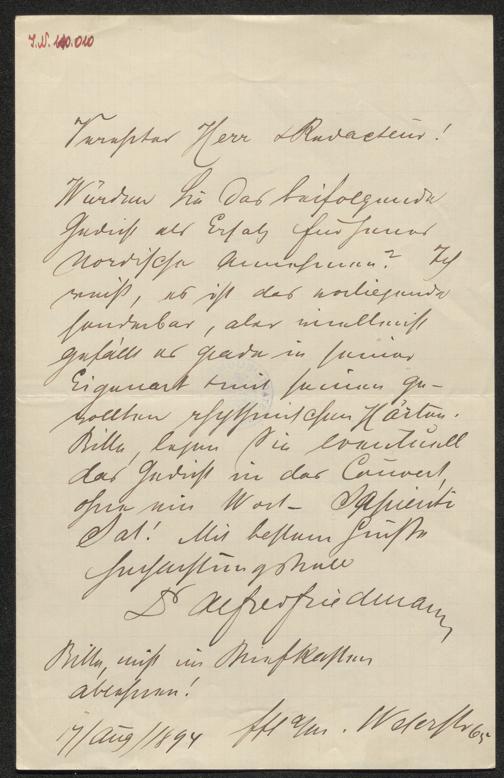 J.N. 140.010
Verehrter Herr Redacteur!
Würden Sie das beifolgende
Gedicht als Ersatz für jenes
Nordische annehmen? Ich
weiß, es ist das vorliegende
sonderbar, aber vielleicht
gefällt es grade in seiner
Eigenart mit seinen ge-
wollten rhythmischen Härten.
Bitte, legen Sie eventuell
das Gedicht in das Couvert
ohne ein Wort – Sapienti
Sat! Mit bestem Gruße
hochachtungsvoll
Dr Alfred Friedmann
Bitte, nicht im Briefkasten
ablehnen!
17/Aug/1894 Fft a/m. Weserstr 65